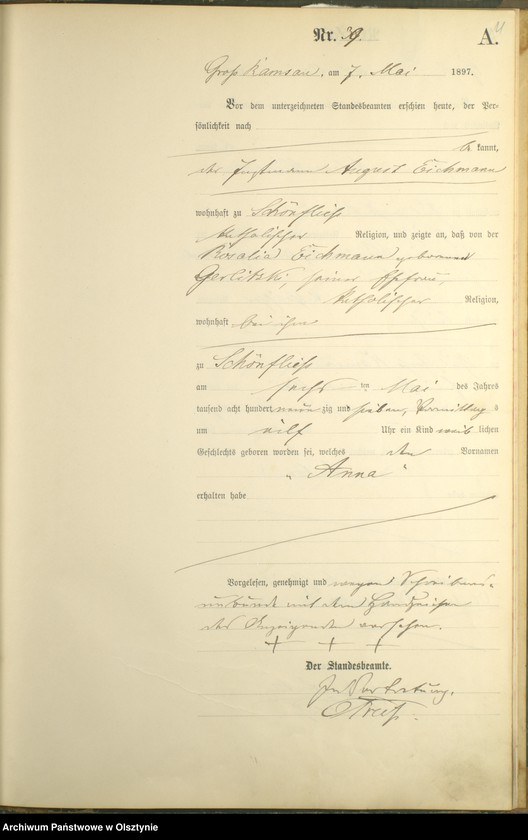 Nr. 39.
A.
Groß Ramsau, am 7. Mai 1897.
Vor dem unterzeichneten Standesbeamten erschien heute, der Per-
sönlichkeit nach
be kannt,
der Instmann August Eichmann
wohnhaft zu Schönfließ
katholischer Religion, und zeigte an, daß von der
Rosalia Eichmann geborenen
Gerlitzki, seiner Ehefrau,
katholischer Religion,
wohnhaft bei ihm
zu Schönfließ
am sechsten Mai des Jahres
tausend acht hundert neun zig und sieben, Vormittags
um eilf Uhr ein Kind weib lichen
Geschlechts geboren worden sei, welches den Vornamen
„Anna“
erhalten habe
Vorgelesen, genehmigt und wegen Schreibens-
unkunde mit dem Handzeichen
des Anzeigenden versehen.
+ + +
Der Standesbeamte.
In Vertretung.
Archiwum Państwowe w Olsztynie